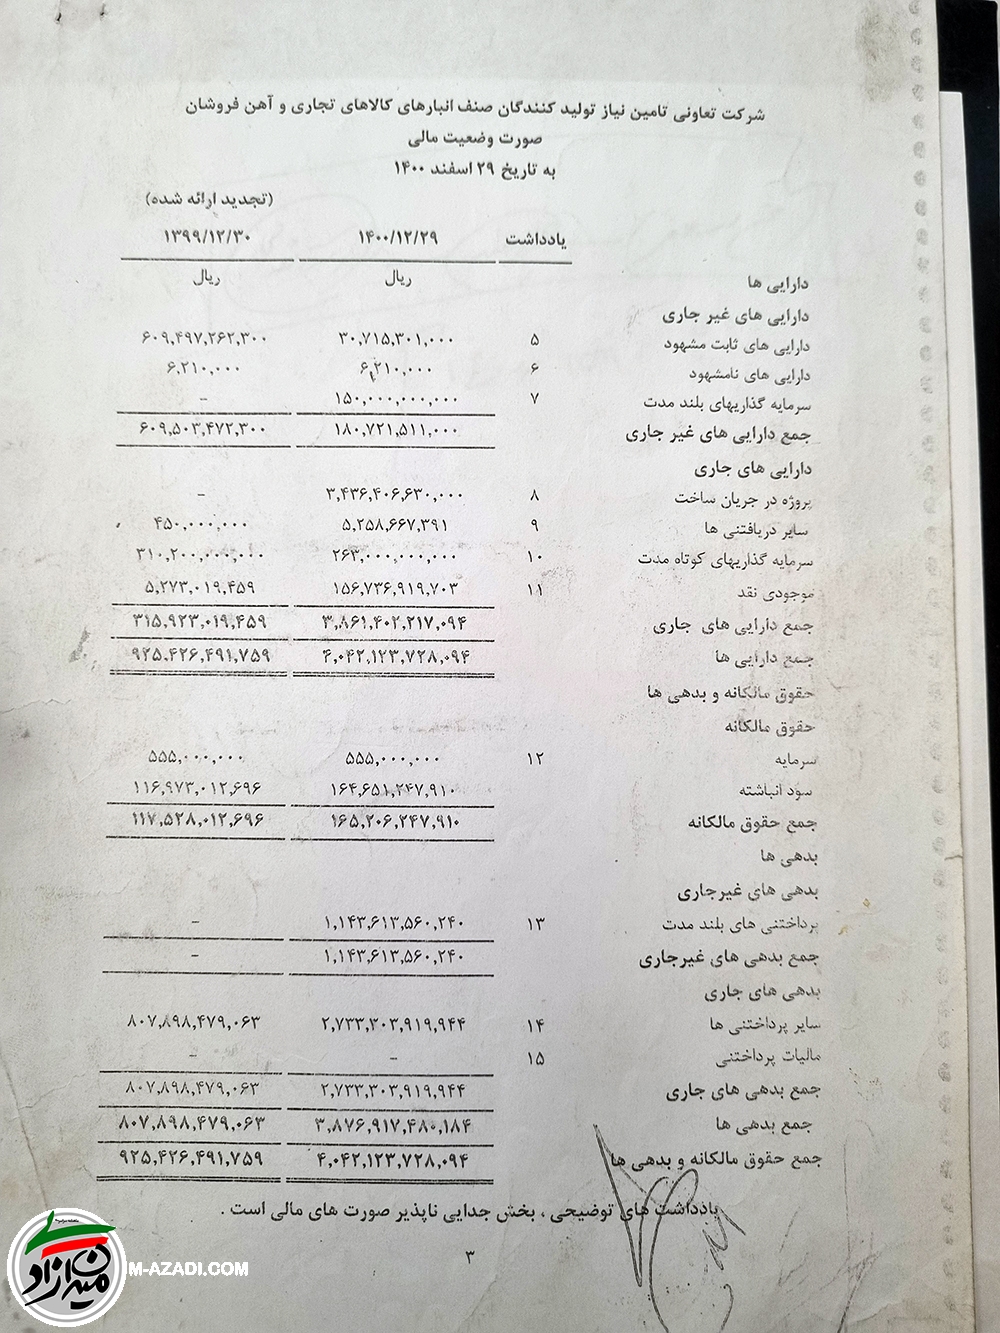 شرکت تعاونی تامین نیاز تولید کنندگان صنف انبارهای کالاهای تجاری و آهن فروشان
صورت وضعیت مالی
به تاریخ ۲۹ اسفند ۱۴۰۰
(تجدید ارائه شده)
یادداشت ۱۴۰۰/۱۲/۲۹ ۱۳۹۹/۱۲/۳۰
ریال ریال
دارایی ها
دارایی های غیر جاری
دارایی های ثابت مشهود ۵ ۳۰,۷۱۵,۳۰۱,۰۰۰ ۶۰۹,۴۹۷,۲۶۲,۳۰۰
دارایی های نامشهود ۶ ۶,۲۱۰,۰۰۰ ۶,۲۱۰,۰۰۰
سرمایه گذاریهای بلند مدت ۷ ۱۵۰,۰۰۰,۰۰۰,۰۰۰ -
جمع دارایی های غیر جاری ۱۸۰,۷۲۱,۵۱۱,۰۰۰ ۶۰۹,۵۰۳,۴۷۲,۳۰۰
دارایی های جاری
پروژه در جریان ساخت ۸ ۳,۴۳۶,۴۰۶,۶۳۰,۰۰۰ -
سایر دریافتنی ها ۹ ۵,۲۵۸,۶۶۷,۳۹۱ ۴۵۰,۰۰۰,۰۰۰
سرمایه گذاریهای کوتاه مدت ۱۰ ۲۶۳,۰۰۰,۰۰۰,۰۰۰ ۳۱۰,۲۰۰,۰۰۰,۰۰۰
موجودی نقد ۱۱ ۱۵۶,۷۳۶,۹۱۹,۷۰۳ ۵,۲۷۳,۰۱۹,۴۵۹
جمع دارایی های جاری ۳,۸۶۱,۴۰۲,۲۱۷,۰۹۴ ۳۱۵,۹۲۳,۰۱۹,۴۵۹
جمع دارایی ها ۴,۰۴۲,۱۲۳,۷۲۸,۰۹۴ ۹۲۵,۴۲۶,۴۹۱,۷۵۹
حقوق مالکانه و بدهی ها
حقوق مالکانه
سرمایه ۱۲ ۵۵۵,۰۰۰,۰۰۰ ۵۵۵,۰۰۰,۰۰۰
سود انباشته ۱۶۴,۶۵۱,۲۴۷,۹۱۰ ۱۱۶,۹۷۳,۰۱۲,۶۹۶
جمع حقوق مالکانه ۱۶۵,۲۰۶,۲۴۷,۹۱۰ ۱۱۷,۵۲۸,۰۱۲,۶۹۶
بدهی ها
بدهی های غیرجاری
پرداختنی های بلند مدت ۱۳ ۱,۱۴۳,۶۱۳,۵۶۰,۲۴۰ -
جمع بدهی های غیرجاری ۱,۱۴۳,۶۱۳,۵۶۰,۲۴۰ -
بدهی های جاری
سایر پرداختنی ها ۱۴ ۲,۷۳۳,۳۰۳,۹۱۹,۹۴۴ ۸۰۷,۸۹۸,۴۷۹,۰۶۳
مالیات پرداختنی ۱۵ - -
جمع بدهی های جاری ۲,۷۳۳,۳۰۳,۹۱۹,۹۴۴ ۸۰۷,۸۹۸,۴۷۹,۰۶۳
جمع بدهی ها ۳,۸۷۶,۹۱۷,۴۸۰,۱۸۴ ۸۰۷,۸۹۸,۴۷۹,۰۶۳
جمع حقوق مالکانه و بدهی ها ۴,۰۴۲,۱۲۳,۷۲۸,۰۹۴ ۹۲۵,۴۲۶,۴۹۱,۷۵۹
یادداشت های توضیحی ، بخش جدایی ناپذیر صورت های مالی است .
۳
میدان آزادی
M-AZADI.COM